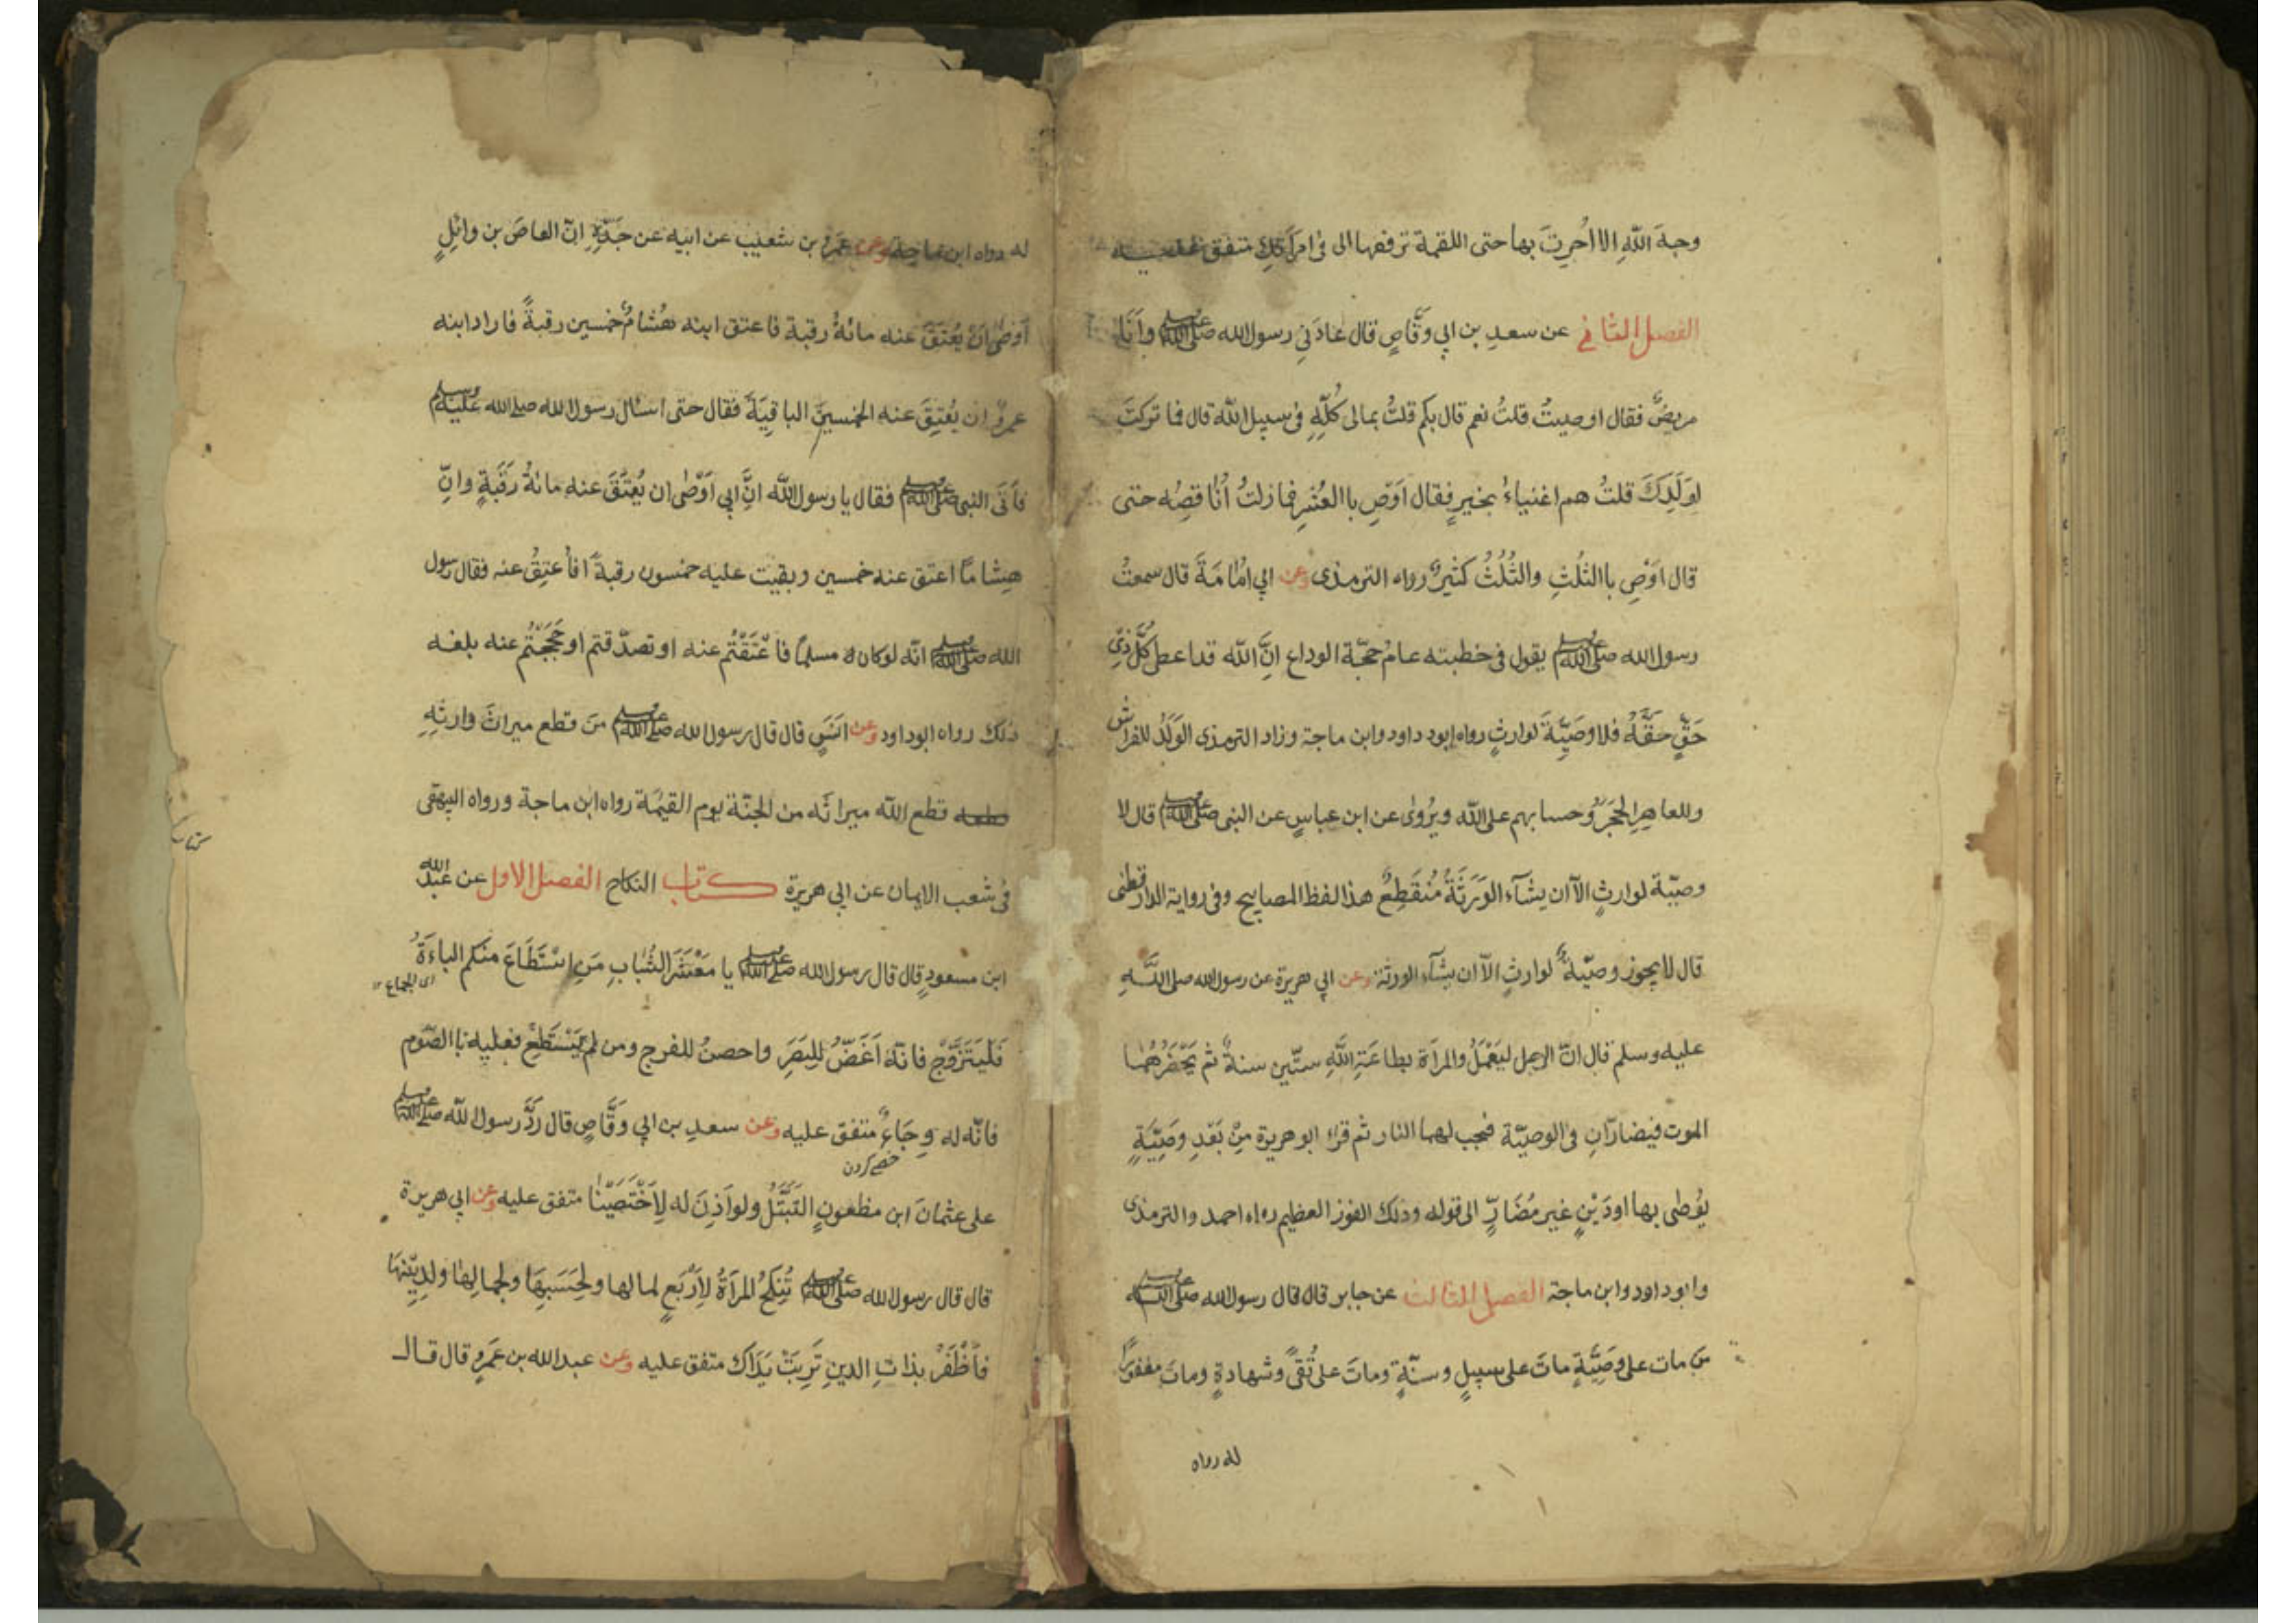 وجهَ اللهِ الا اُجِرتَ بها حتى اللقمة ترفعها الى فى امرَأتِكَ متفق عليه
الفصل الثانى عن سعدِ بن ابي وقّاصٍ قال عادَنِى رسول الله صلى الله عليه وسلم وأنَا
مريضٌ فقال اوصيتَ قلتُ نعم قال بكم قلتُ بمالى كُلِّهِ فى سبيل الله قال فما تركتَ
لِوَلَدِكَ قلتُ هم اغنياءُ بخيرٍ فقال اَوْصِ باالعُشرِ فمازلتُ أُناقِصُه حتى
قال اَوْصِ باالثلُثِ والثُلُثُ كثيرٌ رواه الترمذى وعن ابي اُمَامَةَ قال سمعتُ
رسول الله صلى الله عليه وسلم يقول فى خطبته عام حجّة الوداع انَّ الله قد اعطى كُلَّ ذِىْ
حَقٍّ حَقَّهُ فلا وصَيِّةَ لوارثٍ رواه ابوداود وابن ماجة وزاد الترمذى الوَلَدُ للفراش
وللعاهرِ الحجَرُ وحسابهم على الله ويُروٰى عن ابن عباسٍ عن النبى صلى الله عليه وسلم قال لا
وصيّة لوارثٍ الّا ان يشآء الوَرَثَةُ مُنْقَطِعٌ هذا لفظ المصابيح وفى رواية الدارقطنى
قال لا يجوز وصيّةٌ لوارثٍ الّا ان يشآء الورثة وعن ابي هريرة عن رسول الله صلى الله
عليه وسلم قال انّ الرجل ليَعْمَلُ والمرأة بطاعَةِ اللهِ ستّين سنةً ثم يَحْضُرُهُما
الموت فيضارّانِ فى الوصيّة فتجب لهما النار ثم قرأ ابوهريرة مِنْ بَعْدِ وصَيِّةٍ
يُوْصٰى بها اودَيْنٍ غير مُضَارٍّ الى قوله وذلك الفوز العظيم رواه احمد والترمذى
وابوداود وابن ماجة الفصل الثالث عن جابر قال قال رسول الله صلى الله عليه وسلم
من مات على وصَيِّةٍ ماتَ على سبيلٍ وسنّةٍ وماتَ على تُقىً وشهادةٍ وماتَ مغفورًا
له رواه
له رواه ابن ماجة وعن عَمْرِو بن شعيبٍ عن ابيه عن جَدِّهِ انّ العاصَ بن وائلٍ
اَوْصٰى اَنْ يُعْتَقَ عنه مائةُ رقبة فاعتق ابنه هُشامُ خمسين رقبةً فاراد ابنه
عمروٌ ان يُعْتِقَ عنه الخمسينَ الباقِيَةَ فقال حتى اسئال رسول الله صلى الله عليه وسلم
فأتَى النبى صلى الله عليه وسلم فقال يا رسول الله انَّ ابي اَوْصٰى ان يُعْتَقَ عنه مائةُ رَقَبَةٍ وانّ
هِشامًا اعتق عنه خمسين وبقيت عليه خمسون رقبةً افأُعتِقُ عنه فقال رسول
الله صلى الله عليه وسلم انّه لوكان مسلمًا فاعْتَقْتُم عنه او تصدّقتم اوحَجَجْتُم عنه بلغه
ذلك رواه ابوداود وعن انَسٍ قال قال رسول الله صلى الله عليه وسلم مَن قطع ميراثَ وارثِهِ
قطعه قطع الله ميراثَه من الجنّة يوم القيٰمة رواه ابن ماجة ورواه البيهقى
فى شعب الايمان عن ابي هريرة كتاب النكاح الفصل الاول عن عَبْدُ الله
ابن مسعودٍ قال قال رسول الله صلى الله عليه وسلم يا مَعْشَرَ الشُّبابِ مَنِ اسْتَطَاعَ منكم الباءَةَ
اى الجماع ١٢
فَلْيَتَزَوَّجْ فانّهُ اَغَضُّ لِلبَصَرِ واحصنُ للفرج ومن لم يَسْتَطِعْ فعليه باالصّوم
فانّه له وِجَاءٌ متفق عليه وعن سعدِ بن ابي وقّاصٍ قال رَدَّ رسول الله صلى الله عليه وسلم
خصى كردن
على عثمانَ ابن مظعونٍ التَبَتُّلَ ولو اَذِنَ له لاَخْتَصَيْنَا متفق عليه وعن ابي هريرة
قال قال رسول الله صلى الله عليه وسلم تُنكَحُ المرأةُ لِاَرْبَعٍ لمالها ولِحَسَبِهَا ولجمالِها ولدِينِهَا
فأظْفَرْ بذاتِ الدينِ تَرِبَتْ يَدَاكَ متفق عليه وعن عبدالله بن عَمْرٍو قال قال